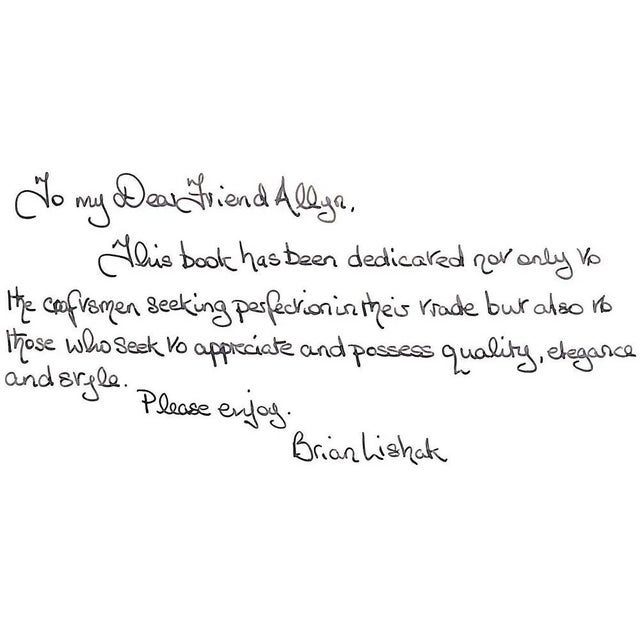 To my Dear Friend Allyn,
This book has been dedicated not only to
the craftsmen seeking perfection in their trade but also to
those who seek to appreciate and possess quality, elegance
and style.
Please enjoy.
Brian Lishak